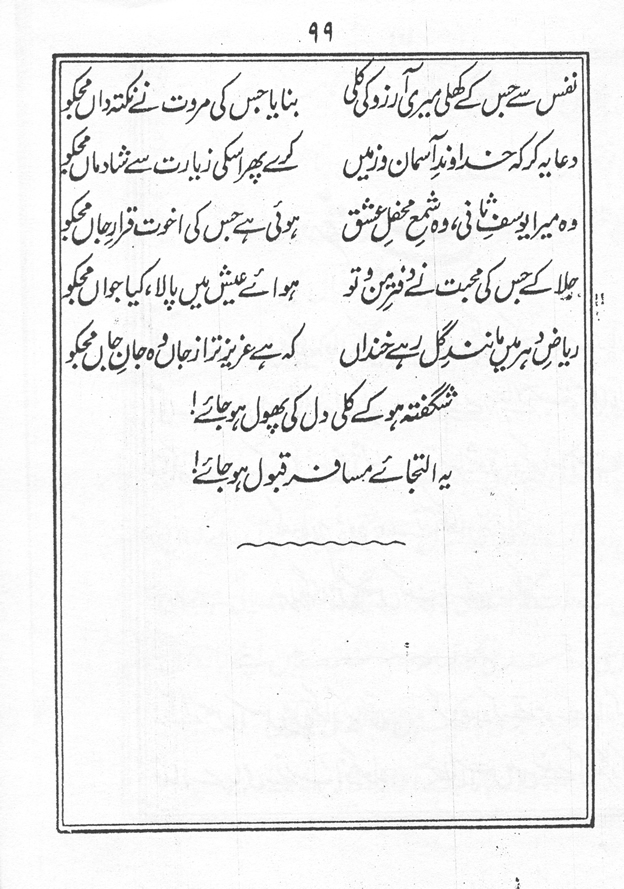 ۹۹
نفس سے جس کے کھلی میری آرزو کی کلی بنایا جس کی مروت نے نکتہ داں مجکو
دعا یہ کر کہ خداوندِ آسمان و زمیں کرے پھر اسکی زیارت سے شادماں مجکو
وہ میرا یوسفِ ثانی، وہ شمعِ محفلِ عشق ہوئی ہے جس کی اخوت قرارِ جاں مجکو
جلا کے جس کی محبت نے دفترِ من و تو ہوائے عیش میں پالا، کیا جواں مجکو
ریاضِ دہر میں مانندِ گل رہے خنداں کہ ہے عزیز تر از جاں وہ جانِ جاں مجکو
شگفتہ ہو کے کلی دل کی پھول ہو جائے!
یہ التجائے مسافر قبول ہو جائے!